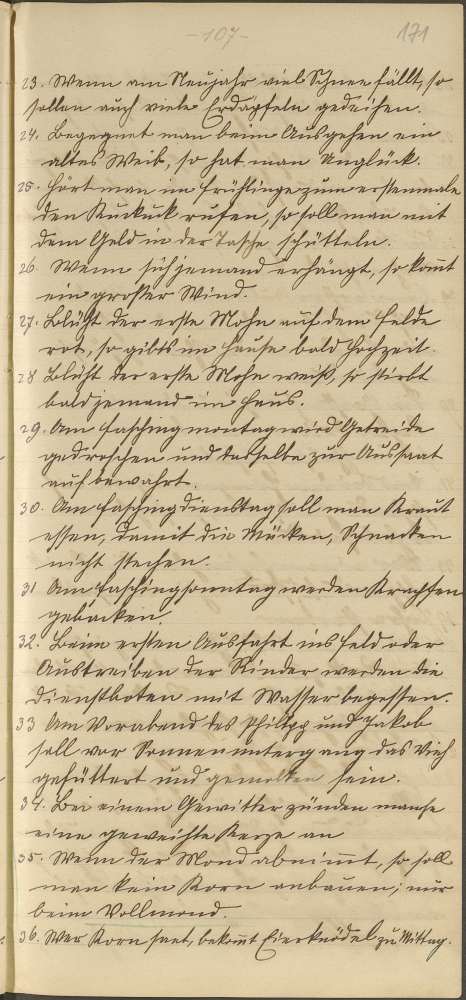 -107-
171
23. Wenn am Neujahr viel Schnee fällt, so
sollen auch viele Erdäpfeln gedeihen.
24. Begegnet man beim Ausgehen ein
altes Weib, so hat man Unglück.
25. Hört man im Frühlinge zum erstenmale
den Kuckuk rufen, so soll man mit
dem Geld in der Tasche schütteln.
26. Wenn sich jemand erhängt, so kom̅t
ein großer Wind.
27. Blüht der erste Mohn auf dem Felde
rot, so gibts im Hause bald Hochzeit.
28 Blüht der erste Mohn weiß, so stirbt
bald jemand im Haus.
29. Am Faschingmontag wird Getreide
gedroschen und dasselbe zur Aussaat
aufbewahrt.
30. Am Faschingdienstag soll man Kraut
essen, damit die Mücken, Schnacken
nicht stechen.
31 Am Faschingsonntag werden Krapfen
gebacken.
32. Beim ersten Ausfahrt ins Feld oder
Austreiben der Rinder werden die
Dienstboten mit Wasser begossen.
33 Am Vorabend des Philipp und Jakob
soll vor Sonnenuntergang das Vieh
gefüttert und gemolken sein.
34. Bei einem Gewitter zünden manche
eine geweihte Kerze an
35. Wenn der Mond abnim̅t, so soll
man kein Korn anbauen; nur
beim Vollmond.
36. Wer Korn saet, bekom̅t Eierknödel zu Mittag.